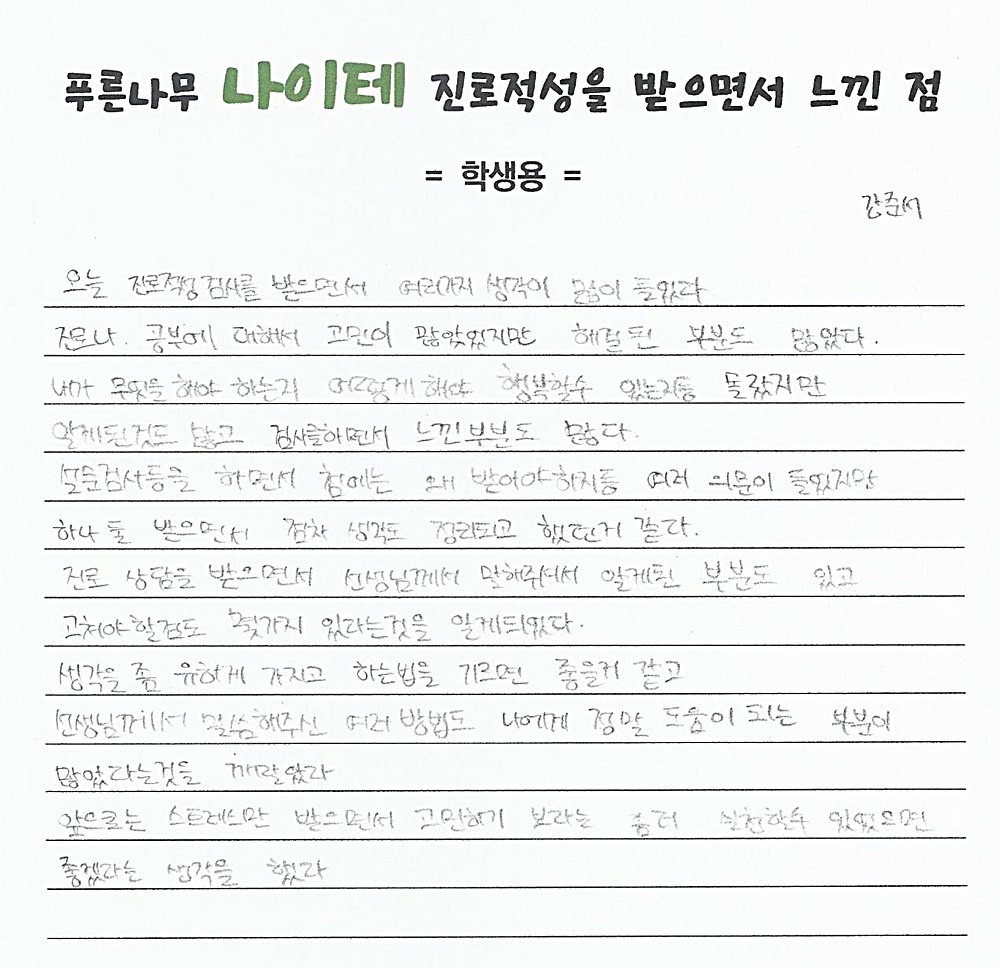 푸른나무 나이테 진로적성을 받으면서 느낀 점
= 학생용 =
강준서
오늘 진로적성검사를 받으면서 여러가지 생각이 많이 들었다
진로나. 공부에 대해서 고민이 많았었지만 해결된 부분도 많았다.
내가 무엇을 해야 하는지 어떻게 해야 행복할수 있는지를 몰랐지만
알게된것도 많고 검사를하면서 느낀부분도 많다.
설문검사등을 하면서 첨에는 왜 받아야하지등 여러 의문이 들었지만
하나 둘 받으면서 점차 생각도 정리되고 했던거 같다.
진로 상담을 받으면서 선생님께서 말해주셔서 알게된 부분도 있고
고쳐야할점도 몇가지 있다는것을 알게되었다.
생각을 좀 유하게 가지고 하는법을 기르면 좋을거 같고
선생님께서 말씀해주신 여러 방법도 나에게 정말 도움이 되는 부분이
많았다는것을 깨달았다
앞으로는 스트레스만 받으면서 고민하기 보다는 좀더 실천할수 있었으면
좋겠다는 생각을 했다